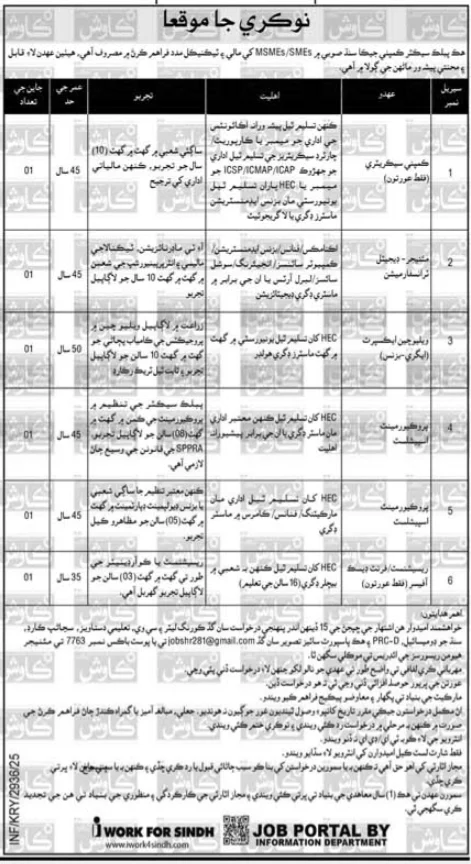 نوڪري جا موقعا
هڪ پبلڪ سيڪٽر ڪمپني جيڪا سنڌ صوبي ۾ MSMEs/SMEs کي مالي ۽ ٽيڪنيڪل مدد فراهم ڪرڻ ۾ مصروف آهي، هيٺين عهدن لاءِ قابل
۽ محنتي پيشه ور ماڻهن جي ڳولا ۾ آهي.
سيريل نمبر
عهدو
اهليت
تجربو
عمر جي حد
جاين جي تعداد
1
ڪمپني سيڪريٽري
(فقط عورتون)
ڪنهن تسليم ٿيل پيشه وراڻه اڪائونٽس
جي اداري جو ميمبر يا ڪارپوريٽ/
چارٽرڊ سيڪريٽريز جي تسليم ٿيل اداري
جو جهڙوڪ ICSP/ICMAP/ICAP جو
ميمبر يا HEC پاران تسليم ٿيل
يونيورسٽي مان بزنس ايڊمنسٽريشن
ماسٽرز ڊگري يا لا گريجوئيٽ
ساڳئي شعبي ۾ گهٽ ۾ گهٽ (10)
سال جو تجربو، ڪنهن مالياتي
اداري کي ترجيح
45 سال
01
2
مئنيجر - ڊيجيٽل
ٽرانسفارميشن
اڪنامڪس/فنانس/بزنس ايڊمنسٽريشن/
ڪمپيوٽر سائنسز/انجنيئرنگ/سوشل
سائنسز/لبرل آرٽس يا ان جي برابر ۾
ماسٽري ڊگري ڊيجيٽائزيشن
آءِ ٽي ماڊرنائزيشن، ٽيڪنالاجي
ماليسي ۽ انٽرپرينيورشپ جي شعبين
۾ گهٽ ۾ گهٽ 10 سال جو لاڳاپيل
تجربو
45 سال
01
3
ويليوچين ايڪسپرٽ
(ايگري-بزنس)
HEC کان تسليم ٿيل يونيورسٽي ۾ گهٽ
۾ گهٽ ماسٽرز ڊگري هولڊر
زراعت ۾ لاڳاپيل ويليو چين ۾
پروجيڪٽس جي ڪامياب پڄاڻي جو
گهٽ ۾ گهٽ 10 سالن جو لاڳاپيل
تجربو ۽ ثابت ٿيل ٽريڪ رڪارڊ
50 سال
01
4
پروڪيورمينٽ
اسپيشلسٽ
HEC کان تسليم ٿيل ڪنهن معتبر اداري
مان ماسٽر ڊگري يا ان جي برابر پيشيورانه
اهليت
پبلڪ سيڪٽر جي تنظيم ۾
پروڪيورمينٽ جي ڪمن ۾ گهٽ ۾
گهٽ (08) سالن جو لاڳاپيل تجربو.
SPPRA جي قانونن جي وسيع ڄاڻ
لازمي آهي.
45 سال
01
5
پروڪيورمينٽ
اسپيشلسٽ
HEC کان تسليم ٿيل اداري مان
مارڪيٽنگ/فنانس/ڪامرس ۾ ماسٽر
ڊگري
ڪنهن معتبر تنظيم جا ساڳي شعبي
يا بزنس ڊيولپمينٽ ڊپارٽمينٽ ۾ گهٽ
۾ گهٽ (05) سالن جو مظاهرو ڪيل
تجربو.
45 سال
01
6
ريسيپشنسٽ/فرنٽ ڊيسڪ
آفيسر (فقط عورتون)
HEC کان تسليم ٿيل ڪنهن به شعبي ۾
بيچلر ڊگري (16 سالن جي تعليم)
ريسپشنسٽ يا ڪوآرڊينيٽر جي
طور تي گهٽ ۾ گهٽ (03) سالن جو
لاڳاپيل تجربو گهربل آهي.
35 سال
01
اهم هدايتون:
خواهشمند اميدوار هن اشتهار جي ڇپجڻ جي 15 ڏينهن اندر پنهنجي درخواست سان گڏ ڪورنگ ليٽر ۽ سي وي، تعليمي دستاويز، سڃاڻپ ڪارڊ،
سنڌ جو ڊوميسائيل، PRC-D ۽ هڪ پاسپورٽ سائيز تصوير سان گڏ jobshr281@gmail.com تي يا پوسٽ باڪس نمبر 7763 تي مئنيجر
هيومن ريسورسز جي ائڊريس تي موڪلي سگهن ٿا.
مهرباني ڪري لفافي تي واضح طور تي عهدي جو نالو لکو جنهن لاءِ درخواست ڏني پئي وڃي.
عورتن جي ڀرپور حوصلا افزائي ڏني وڃي ٿي ته هو درخواست ڏين.
مارڪيٽ جي بنياد تي پگهار ۽ معاوضو پئڪيج فراهم ڪيو ويندو.
اڻ مڪمل درخواستون جيڪي مقرر تاريخ کانپوءِ وصول ٿينديون غور جوڳيون نه هونديو، جعلي، مبالغه آميز يا گمراه ڪندڙ ڄاڻ فراهم ڪرڻ جي
صورت ۾ ڪنهن به مرحلي ۾ درخواست رد ڪئي ويندي ۽ نوڪري ختم ڪئي ويندي.
انٽرويو جي لاءِ ڪو به ٽي اي/ڊي اي نه ڏنو ويندو.
فقط شارٽ لسٽ ڪيل اميدوارن کي انٽرويو لاءِ سڏايو ويندو.
مجاز اٿارٽي کي اهو حق آهي ته ڪنهن به يا سمورين درخواستن کي بنا ڪو سبب ڄاڻائي قبول يا رد ڪري ڇڏي
ڪري ڇڏي.
سمورن عهدن تي هڪ (1) سال معاهدي جي بنياد تي ڀرتي ڪئي ويندي ۽ مجاز اٿارٽي جي ڪارڪردگي ۽ منظوري جي بنياد تي هن جي تجديد
ڪري سگهجي ٿي.
INF/KRY/2936/25
I WORK FOR SINDH
www.iwork4sindh.com
JOB PORTAL BY
INFORMATION DEPARTMENT